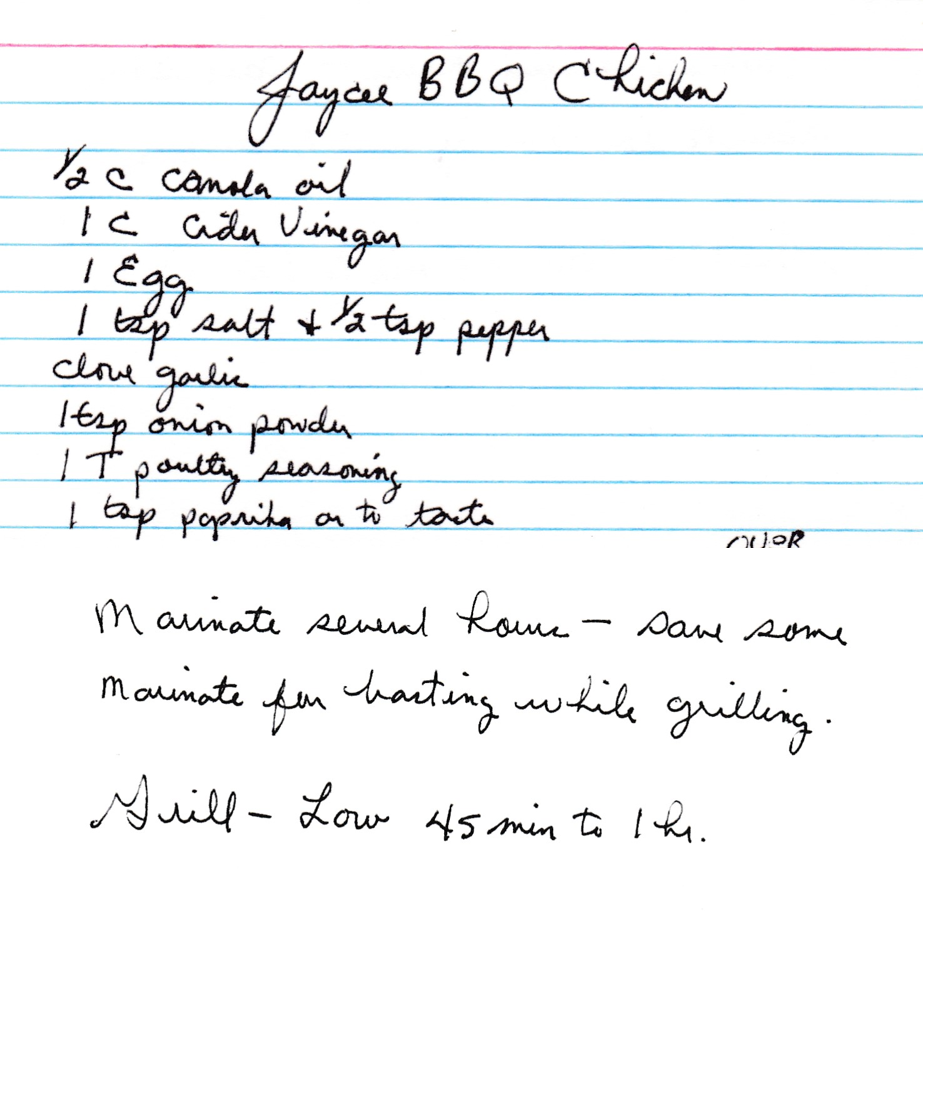 Jaycee BBQ Chicken
1/2 C Canola oil
1 C Cider Vinegar
1 Egg
1 tsp salt & 1/2 tsp pepper
clove garlic
1 tsp onion powder
1 T poultry seasoning
1 tsp paprika or to taste
OVER
Marinate several hours - save some
marinate for basting while grilling.
Grill - Low 45 min to 1 hr.